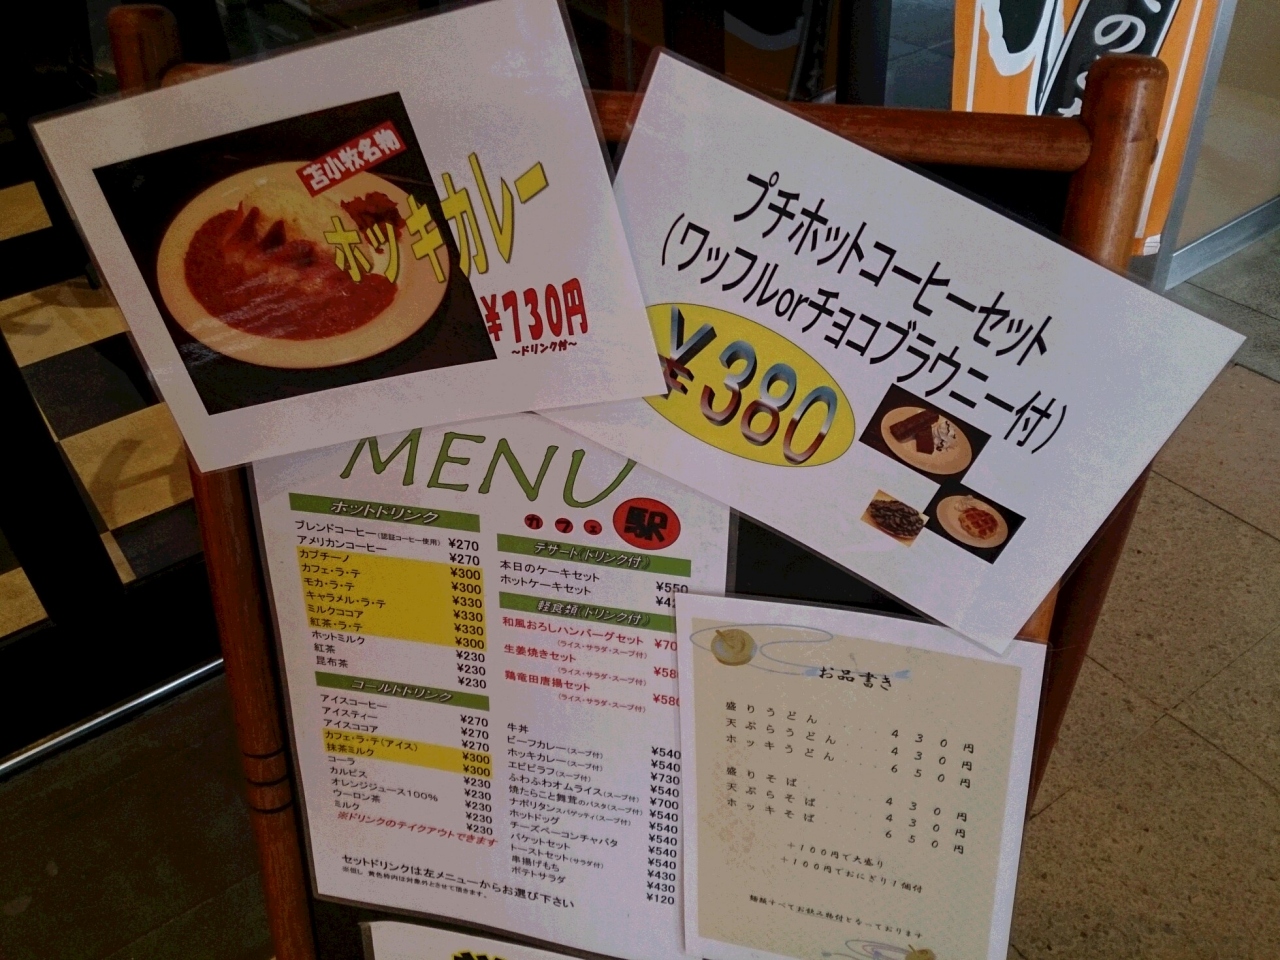 苫小牧名物
ホッキカレー
¥730円
～ドリンク付～
プチホットコーヒーセット
(ワッフルorチョコブラウニー付)
¥380
MENU
カフェ 駅
ホットドリンク
ブレンドコーヒー(認証コーヒー使用) ¥270
アメリカンコーヒー ¥270
カプチーノ ¥300
カフェ・ラ・テ ¥300
モカ・ラ・テ ¥330
キャラメル・ラ・テ ¥330
ミルクココア ¥330
紅茶・ラ・テ ¥300
ホットミルク ¥230
紅茶 ¥230
昆布茶 ¥230
コールドドリンク
アイスコーヒー ¥270
アイスティー ¥270
アイスココア ¥270
カフェ・ラ・テ(アイス) ¥300
抹茶ミルク ¥300
コーラ ¥230
カルピス ¥230
オレンジジュース100% ¥230
ウーロン茶 ¥230
ミルク ¥230
※ドリンクのテイクアウトできます
デザート(ドリンク付)
本日のケーキセット ¥550
ホットケーキセット
軽食類(ドリンク付)
和風おろしハンバーグセット ¥70
(ライス・サラダ・スープ付)
生姜焼きセット ¥580
(ライス・サラダ・スープ付)
鶏竜田唐揚セット ¥580
(ライス・サラダ・スープ付)
牛丼 ¥540
ビーフカレー(スープ付) ¥540
ホッキカレー(スープ付) ¥730
エビピラフ(スープ付) ¥540
ふわふわオムライス(スープ付) ¥700
焼たらこと舞茸のパスタ(スープ付) ¥540
ナポリタンスパゲッティ(スープ付) ¥540
ホットドッグ ¥540
チーズベーコンチャバタ ¥540
バケットセット ¥540
トーストセット(サラダ付) ¥430
串揚げもち ¥430
ポテトサラダ ¥120
セットドリンクは左メニューからお選び下さい
※但し 黄色枠内は対象外とさせて頂きます。
お品書き
盛りうどん....430円
天ぷらうどん...430円
ホッキうどん...650円
盛りそば....430円
天ぷらそば....430円
ホッキそば....650円
+100円で大盛り
+100円でおにぎり1個付
麺類すべてお飲み物付となっております